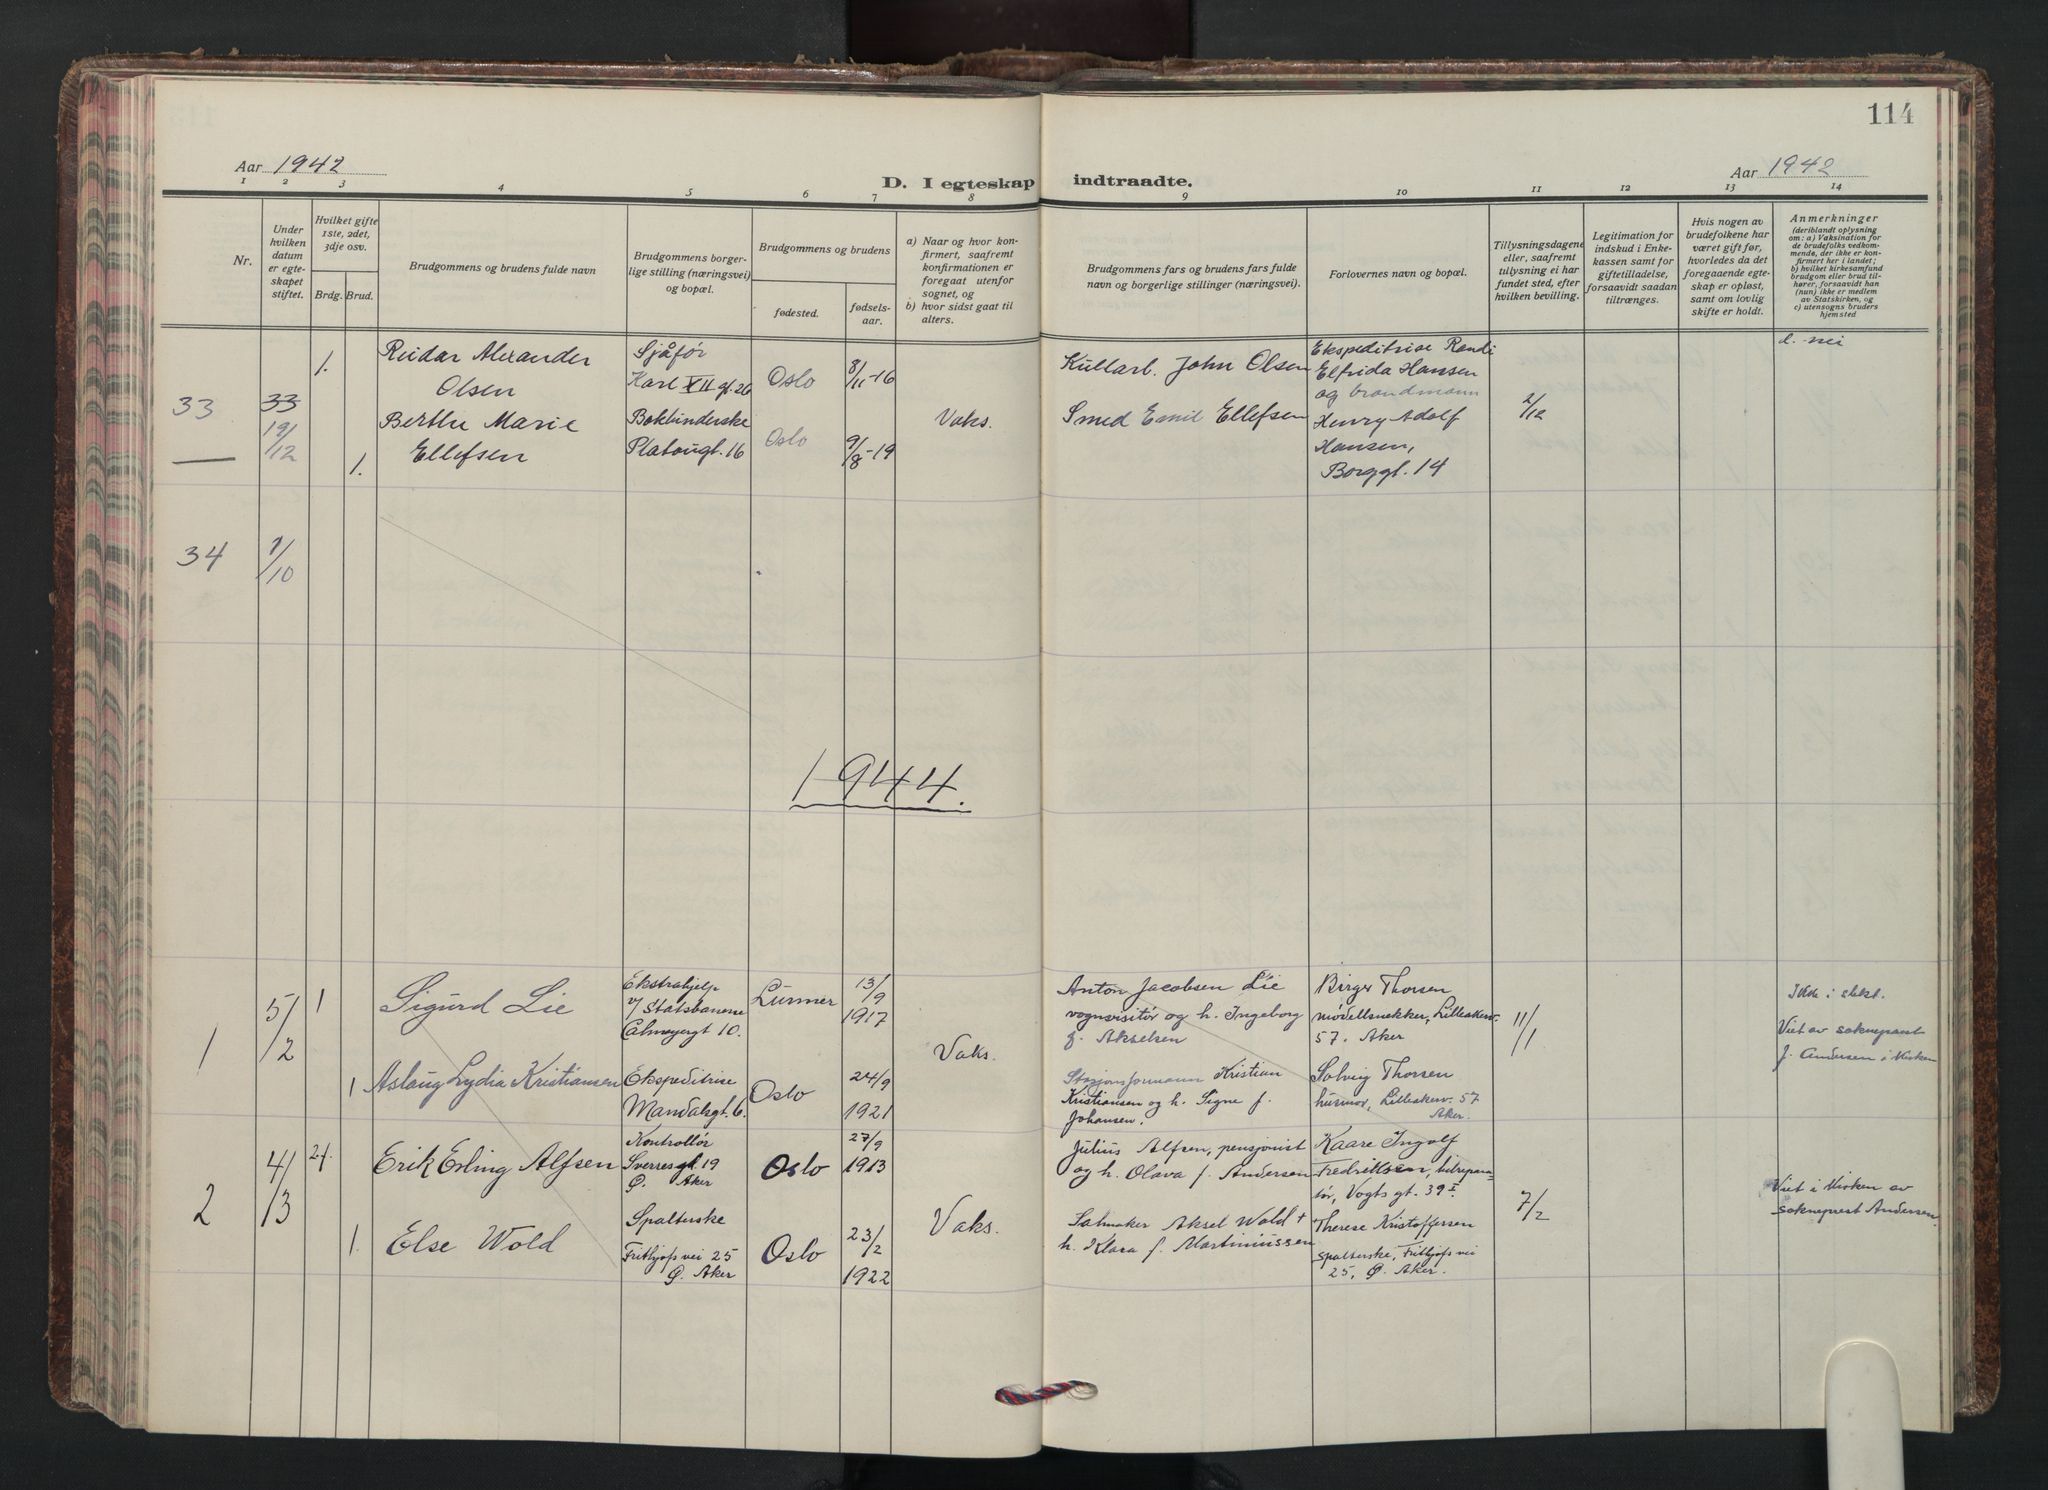 114
Aar 1942
D. I egteskap indtraadte.
Aar 1942
1 2 3 4 5 6 7 8 9 10 11 12 13 14
Nr.
Under
hvilken
datum
er egte-
skapet
stiftet.
Hvilket gifte
1ste, 2det,
3dje osv.
Brdg. Brud.
Brudgommens og brudens fulde navn
Brudgommens borger-
lige stilling (næringsvei)
og bopæl.
Brudgommens og brudens
fødested.
fødsels-
aar.
a) Naar og hvor kon-
firmert, saafremt
konfirmationen er
foregaat utenfor
sognet, og
b) hvor sidst gaat til
alters.
Brudgommens fars og brudens fars fulde
navn og borgerlige stillinger (næringsvei).
Forlovernes navn og bopæl.
Tillysningsdagene
eller, saafremt
tillysning ei har
fundet sted, efter
hvilken bevilling.
Legitimation for
indskud i Enke-
kassen samt for
giftetilladelse,
forsaavidt saadan
tiltrænges.
Hvis nogen av
brudefolkene har
været gift før,
hvorledes da det
foregaaende egte-
skap er opløst,
samt om lovlig
skifte er holdt.
Anmerkninger
(deriblandt oplysning
om: a) Vaksination for
de brudefolks vedkom-
mende, der ikke er kon-
firmert her i landet;
b) hvilket kirkesamfund
brudgom eller brud til-
hører, forsaavidt han
(hun) ikke er medlem
av Statskirken, og
c) utensogns bruders
hjemsted
33
33
19/12
1.
Reidar Alexander
Olsen
Sjåfør
Karl XII gt. 26
Oslo
8/11-16
Kullarb. John Olsen
Ekspeditrise Randi
Elfrida Hansen
og brandmann
Henry Adolf
Hansen,
Borggt. 14
d. nei
1.
Berthe Marie
Ellefsen
Bokbinderske
Platougt. 16
Oslo
9/8-19
Vaks.
Smed Emil Ellefsen
2/12
34
7/10
1944.
1
5/2
1
Sigurd Lie
Ekstrahjelp
v/ Statsbanene
Calmeyergt 10.
Lunner
13/9
1917
Vaks.
Anton Jacobsen Lie
vognvisitør og h. Ingeborg
f. Akselsen
Birger Thorsen
modellsnekker, Lilleakerv.
57. Aker
11/1
Ikke i slekt.
Viet av sogneprest
J. Andersen i kirken
1
Aslaug Lydia Kristiansen
Ekspeditrise
Mandalsgt. 6.
Oslo
24/9
1921
Stasjonsformann Kristian
Kristiansen og h. Signe f.
Johansen.
Solveig Thorsen
husmor, Lilleakerv. 57
Aker.
2
4/3
24.
Erik Erling Alfsen
Kontrollør
Sverresgt. 19
Ø. Aker
Oslo
27/9
1913
Vaks.
Julius Alfsen, pensjonist
og h. Olava f. Andersen
Kaare Ingolf
Fredriksen, bilrepara-
tør, Vogts gt. 39 I.
7/2
Viet i kirken av
sogneprest Andersen.
1.
Else Wold
Spalterske
Frithjofs vei 25
Ø. Aker
Oslo
23/2
1922
Salmaker Aksel Wold +
h. Klara f. Martiniussen
Therese Kristoffersen
spalterske, Frithjofs vei
25, Ø. Aker.